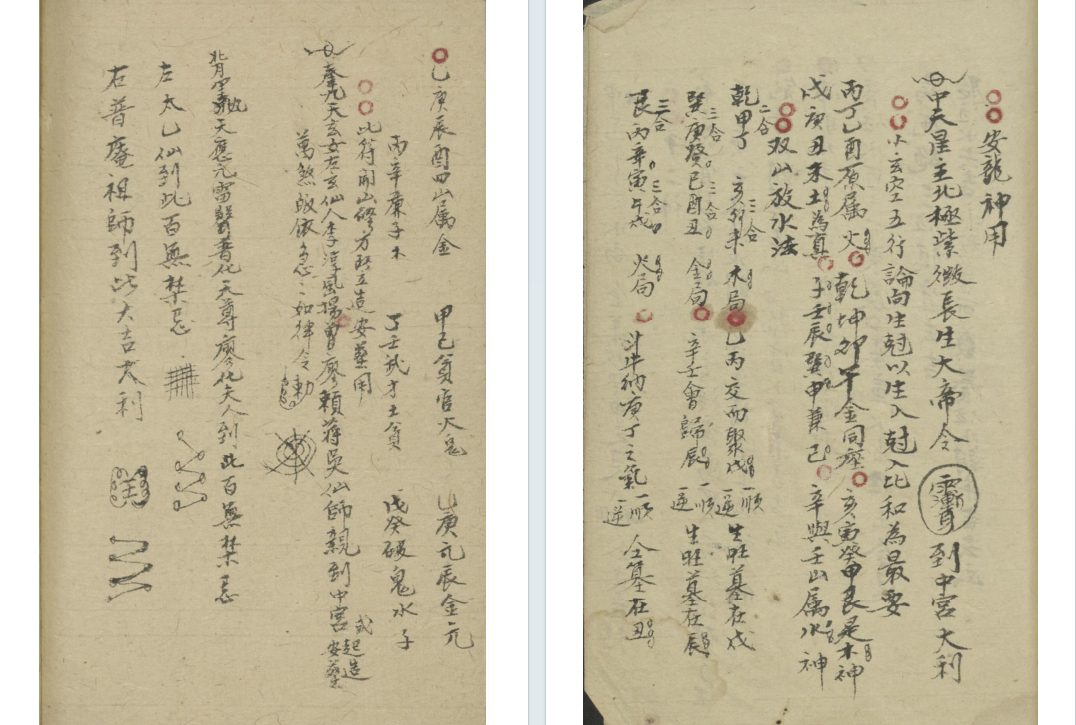 安龍神用
中天星主北極紫微長生大帝令 到中宮大利
小玄空五行論向生尅以生入尅入比和為最要
丙丁乙酉原属火 乾坤卯午金同座 亥寅癸甲艮是木神
戊庚丑未土為真 子壬辰巽申兼己 辛與壬山属水神
双山放水法
乾甲丁 三合 亥卯未 三合 木局 乙丙交而聚戌 一順一逆 生旺墓在戌
巽庚癸 三合 巳酉丑 三合 金局 辛壬會歸辰 一順一逆 生旺墓在辰
艮丙辛 三合 寅午戌 三合 火局 斗牛納庚丁之氣 一順一逆 仝墓在丑
乙庚辰酉四山属金 甲己貪官火鬼 庚元辰金元
丙辛廉子木 丁壬武才土貪 戊癸破鬼水子
此符開山修方竪立造安葬用
奉九天玄女左玄仙人李淳風楊曾廖賴蔣吳仙師親到中宮 或起造安葬
萬煞皈依急急如律令勅
天應元雷聲普化天尊廖化夫人到此百無禁忌
左太乙仙到此百無禁忌
右普庵祖師到此大吉大利